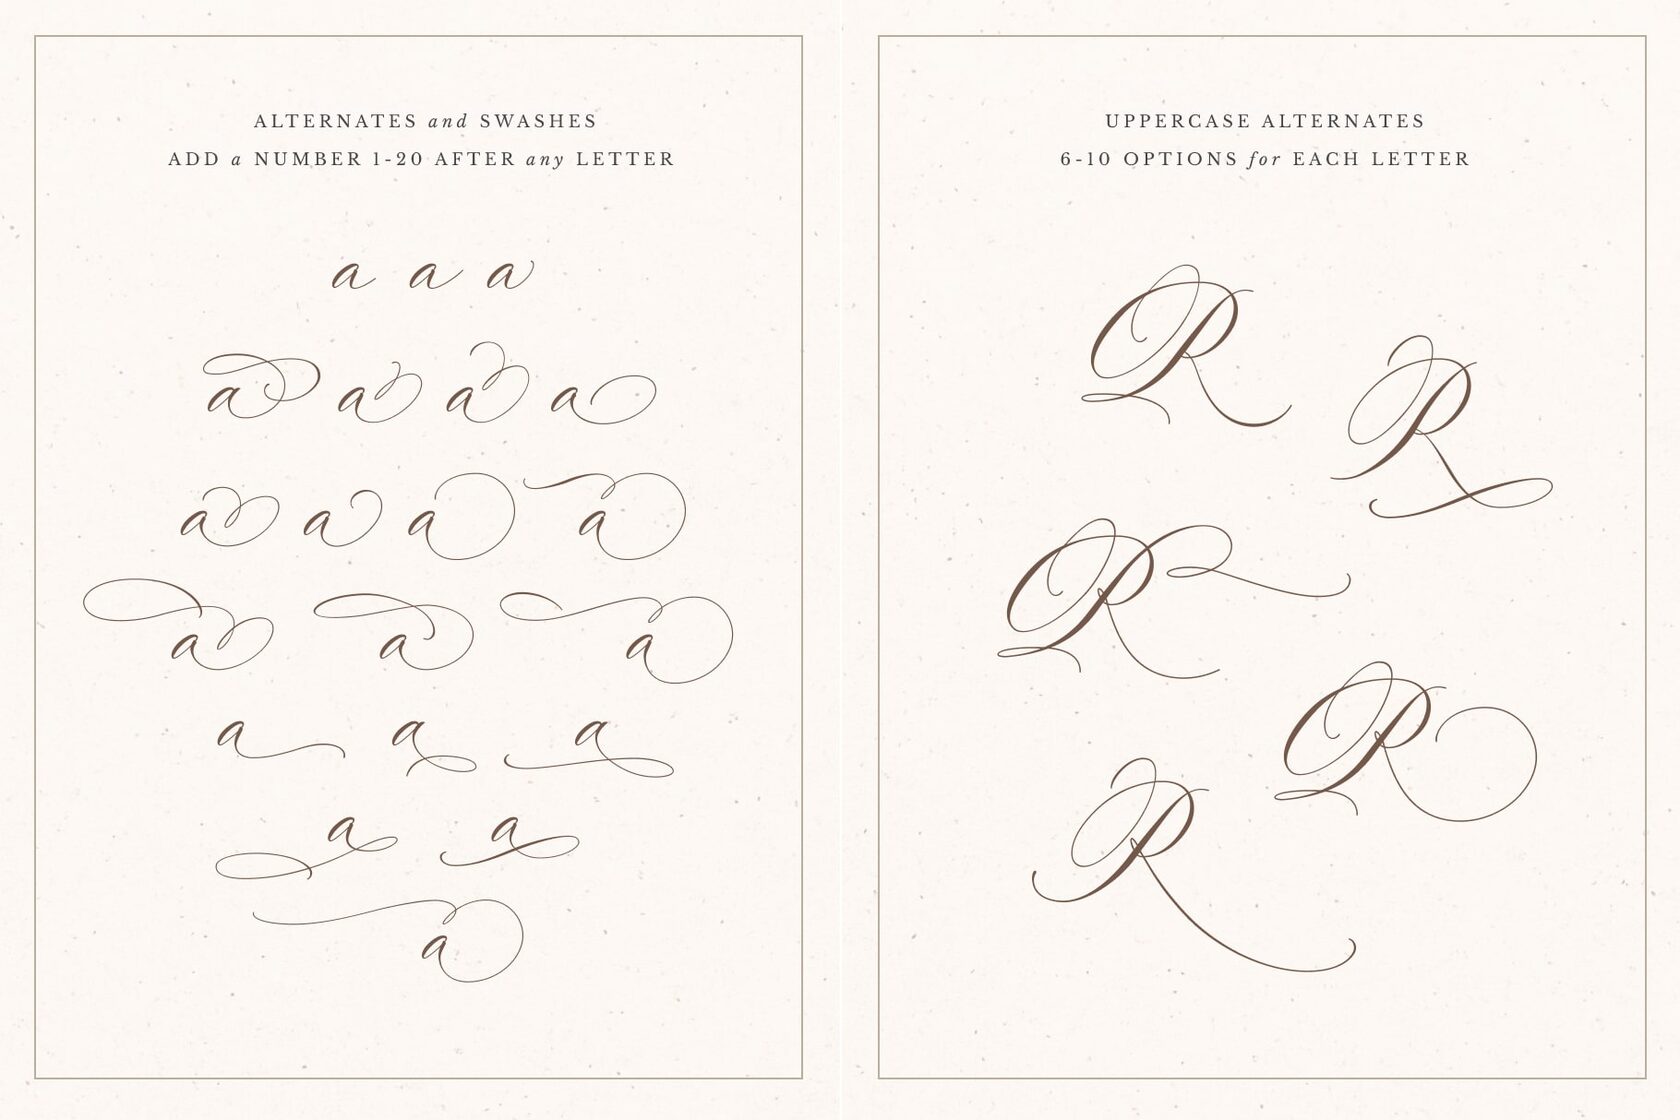 ALTERNATES and SWASHES
ADD a NUMBER 1-20 AFTER any LETTER
a a a
a a a a
a a a a
a a a
a a a
a a
a
UPPERCASE ALTERNATES
6-10 OPTIONS for EACH LETTER
R
R
R
R
R